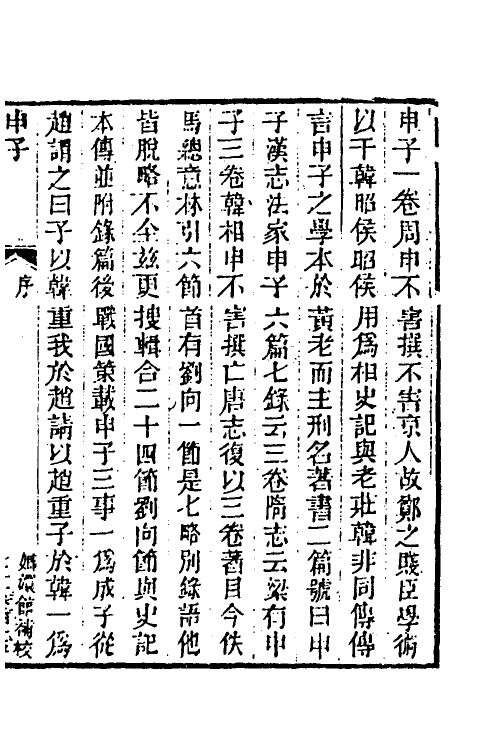 申子一卷周申不害撰不害京人故鄭之賤臣學術
以干韓昭侯昭侯用爲相史記與老莊韓非同傳傳
言申子之學本於黃老而主刑名著書二篇號曰申
子漢志法家申子六篇七錄云三卷隋志云梁有申
子三卷韓相申不害撰亡唐志復以三卷著目今佚
馬總意林引六節首有劉向一節是七略別錄語他
皆脫略不全玆更搜輯合二十四節劉向節與史記
本傳並附錄篇後戰國策載申子三事一爲成子從
趙謂之曰子以韓重我於趙請以趙重子於韓一爲
申子
序
嫏嬛館補校